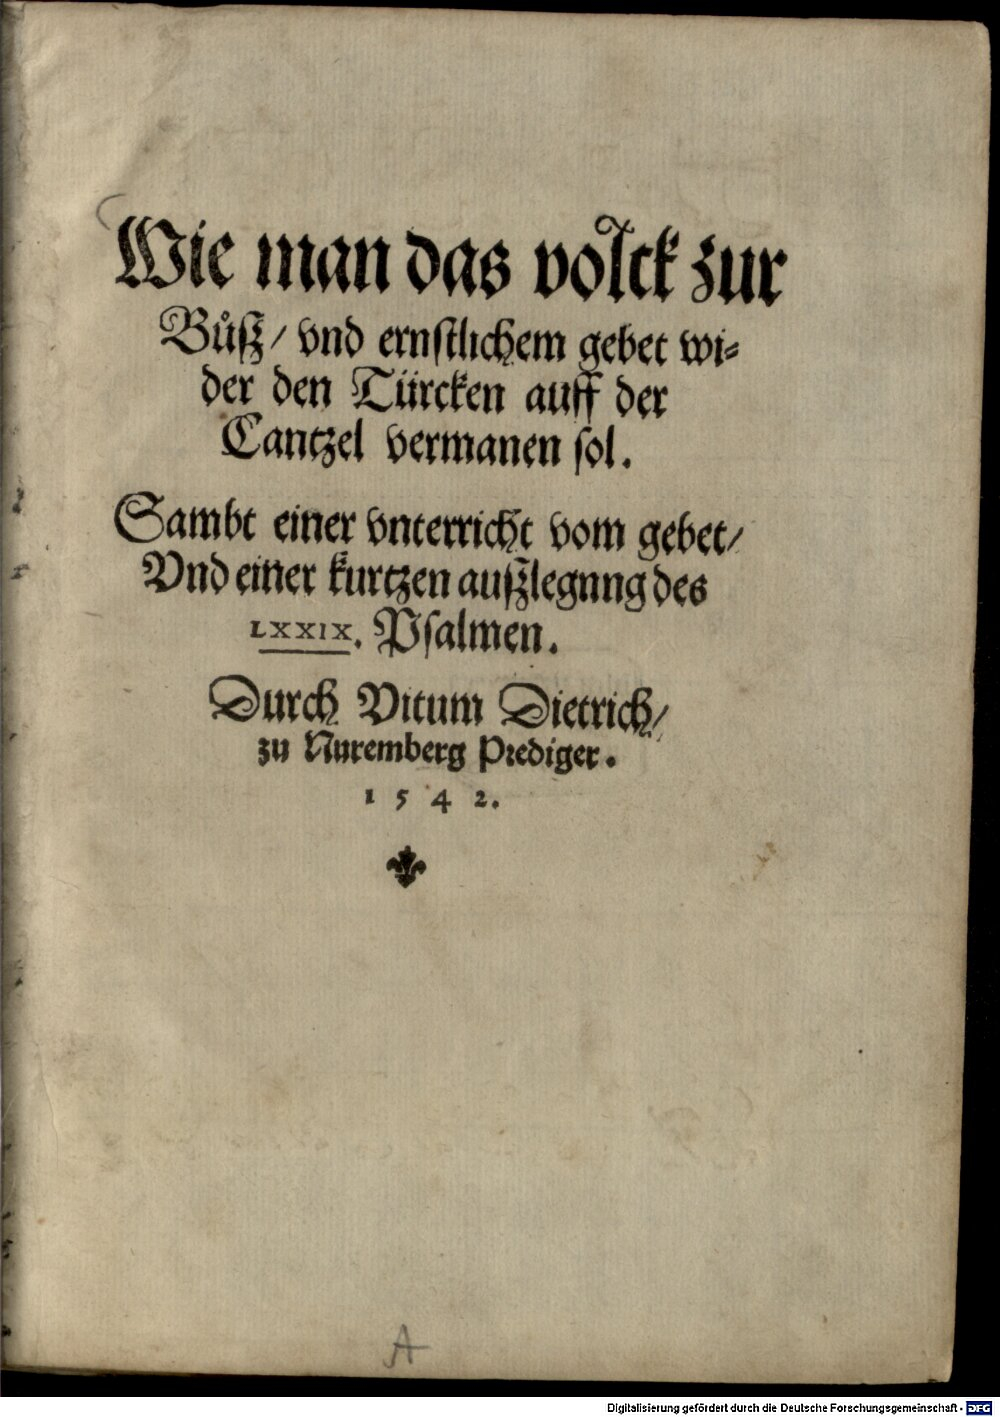 Wie man das volck zur
Bůß / vnd ernstlichem gebet wi⸗
der den Türcken auff der
Cantzel vermanen sol.
Sambt einer vnterricht vom gebet /
Vnd einer kurtzen außlegung des
LXXIX. Psalmen.
Durch Vitum Dietrich /
zu Nuremberg Prediger.
1 5 4 2.
A
Digitalisierung gefördert durch die Deutsche Forschungsgemeinschaft - DFG